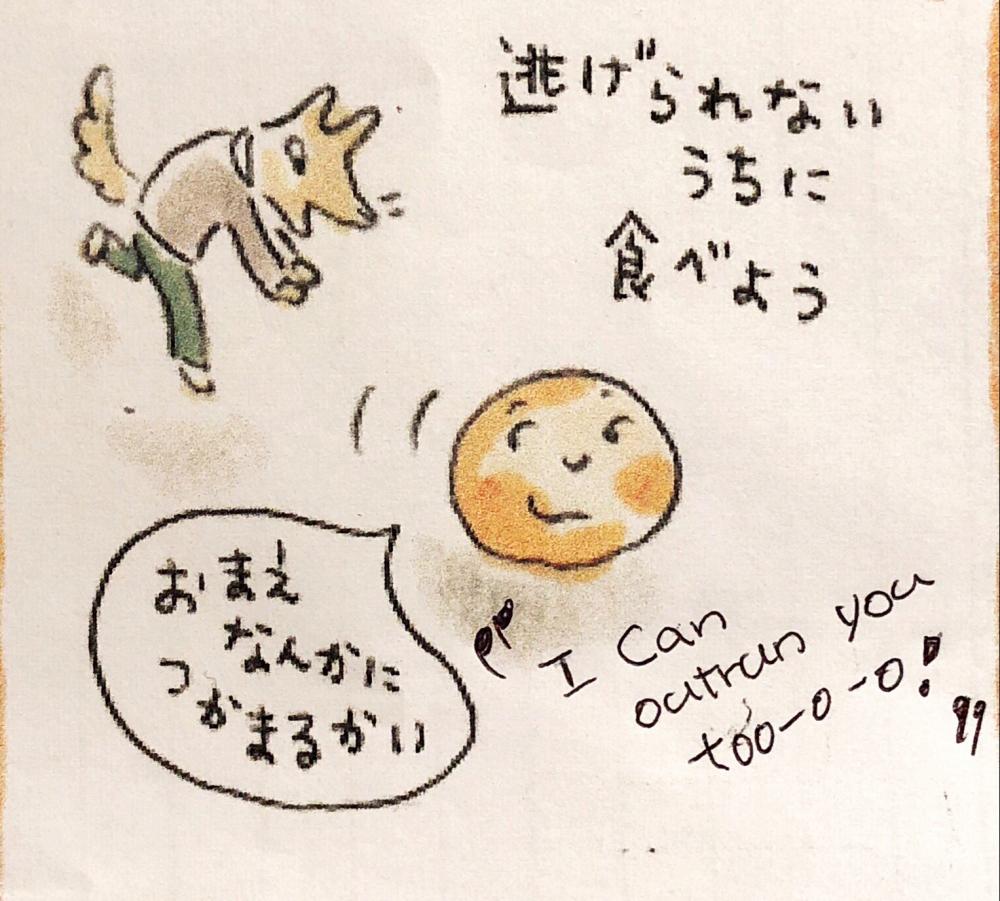 逃げられない
うちに
食べよう
おまえ
なんかに
つかまるかい
"I Can
outrun you
too-o-o!"